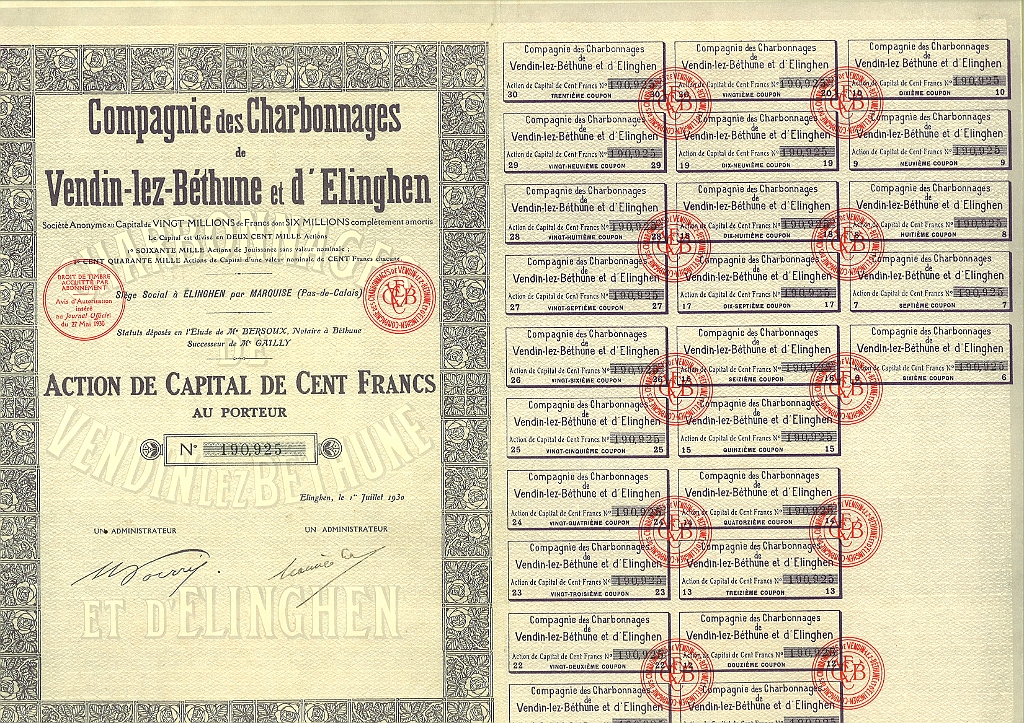 Compagnie des Charbonnages
de
Vendin-lez-Béthune et d'Elinghen
Société Anonyme au Capital de VINGT MILLIONS de Francs dont SIX MILLIONS complètement amortis
Le Capital est divisé en DEUX CENT MILLE Actions
1º SOIXANTE MILLE Actions de Jouissance sans valeur nominale ;
2º CENT QUARANTE MILLE Actions de Capital d'une valeur nominale de CENT Francs chacune.
DROIT DE TIMBRE
ACQUITTÉ PAR
ABONNEMENT
Avis d'Autorisation
inséré
au Journal Officiel
du 27 Mai 1930
Siège Social à ELINGHEN par MARQUISE (Pas-de-Calais)
Statuts déposés en l'Etude de Mᵉ BERSOUX, Notaire à Béthune
Successeur de Mᵉ GAILLY
ACTION DE CAPITAL DE CENT FRANCS
AU PORTEUR
Nº 190,925
VENDIN LEZ BETHUNE
ET D'ELINGHEN
Elinghen, le 1er Juillet 1930
UN ADMINISTRATEUR
UN ADMINISTRATEUR
Compagnie des Charbonnages
de
Vendin-lez-Béthune et d'Elinghen
Action de Capital de Cent Francs Nº 190,925
30 TRENTIÈME COUPON 30
Compagnie des Charbonnages
de
Vendin-lez-Béthune et d'Elinghen
Action de Capital de Cent Francs Nº 190,925
20 VINGTIÈME COUPON 20
Compagnie des Charbonnages
de
Vendin-lez-Béthune et d'Elinghen
Action de Capital de Cent Francs Nº 190,925
10 DIXIÈME COUPON 10
Compagnie des Charbonnages
de
Vendin-lez-Béthune et d'Elinghen
Action de Capital de Cent Francs Nº 190,925
29 VINGT-NEUVIÈME COUPON 29
Compagnie des Charbonnages
de
Vendin-lez-Béthune et d'Elinghen
Action de Capital de Cent Francs Nº 190,925
19 DIX-NEUVIÈME COUPON 19
Compagnie des Charbonnages
de
Vendin-lez-Béthune et d'Elinghen
Action de Capital de Cent Francs Nº 190,925
9 NEUVIÈME COUPON 9
Compagnie des Charbonnages
de
Vendin-lez-Béthune et d'Elinghen
Action de Capital de Cent Francs Nº 190,925
28 VINGT-HUITIÈME COUPON 28
Compagnie des Charbonnages
de
Vendin-lez-Béthune et d'Elinghen
Action de Capital de Cent Francs Nº 190,925
18 DIX-HUITIÈME COUPON 18
Compagnie des Charbonnages
de
Vendin-lez-Béthune et d'Elinghen
Action de Capital de Cent Francs Nº 190,925
8 HUITIÈME COUPON 8
Compagnie des Charbonnages
de
Vendin-lez-Béthune et d'Elinghen
Action de Capital de Cent Francs Nº 190,925
27 VINGT-SEPTIÈME COUPON 27
Compagnie des Charbonnages
de
Vendin-lez-Béthune et d'Elinghen
Action de Capital de Cent Francs Nº 190,925
17 DIX-SEPTIÈME COUPON 17
Compagnie des Charbonnages
de
Vendin-lez-Béthune et d'Elinghen
Action de Capital de Cent Francs Nº 190,925
7 SEPTIÈME COUPON 7
Compagnie des Charbonnages
de
Vendin-lez-Béthune et d'Elinghen
Action de Capital de Cent Francs Nº 190,925
26 VINGT-SIXIÈME COUPON 26
Compagnie des Charbonnages
de
Vendin-lez-Béthune et d'Elinghen
Action de Capital de Cent Francs Nº 190,925
16 SEIZIÈME COUPON 16
Compagnie des Charbonnages
de
Vendin-lez-Béthune et d'Elinghen
Action de Capital de Cent Francs Nº 190,925
6 SIXIÈME COUPON 6
Compagnie des Charbonnages
de
Vendin-lez-Béthune et d'Elinghen
Action de Capital de Cent Francs Nº 190,925
25 VINGT-CINQUIÈME COUPON 25
Compagnie des Charbonnages
de
Vendin-lez-Béthune et d'Elinghen
Action de Capital de Cent Francs Nº 190,925
15 QUINZIÈME COUPON 15
Compagnie des Charbonnages
de
Vendin-lez-Béthune et d'Elinghen
Action de Capital de Cent Francs Nº 190,925
24 VINGT-QUATRIÈME COUPON 24
Compagnie des Charbonnages
de
Vendin-lez-Béthune et d'Elinghen
Action de Capital de Cent Francs Nº 190,925
14 QUATORZIÈME COUPON 14
Compagnie des Charbonnages
de
Vendin-lez-Béthune et d'Elinghen
Action de Capital de Cent Francs Nº 190,925
23 VINGT-TROISIÈME COUPON 23
Compagnie des Charbonnages
de
Vendin-lez-Béthune et d'Elinghen
Action de Capital de Cent Francs Nº 190,925
13 TREIZIÈME COUPON 13
Compagnie des Charbonnages
de
Vendin-lez-Béthune et d'Elinghen
Action de Capital de Cent Francs Nº 190,925
22 VINGT-DEUXIÈME COUPON 22
Compagnie des Charbonnages
de
Vendin-lez-Béthune et d'Elinghen
Action de Capital de Cent Francs Nº 190,925
12 DOUZIÈME COUPON 12
Compagnie des Charbonnages
de
Vendin-lez-Béthune et d'Elinghen
Compagnie des Charbonnages
de
Vendin-lez-Béthune et d'Elinghen